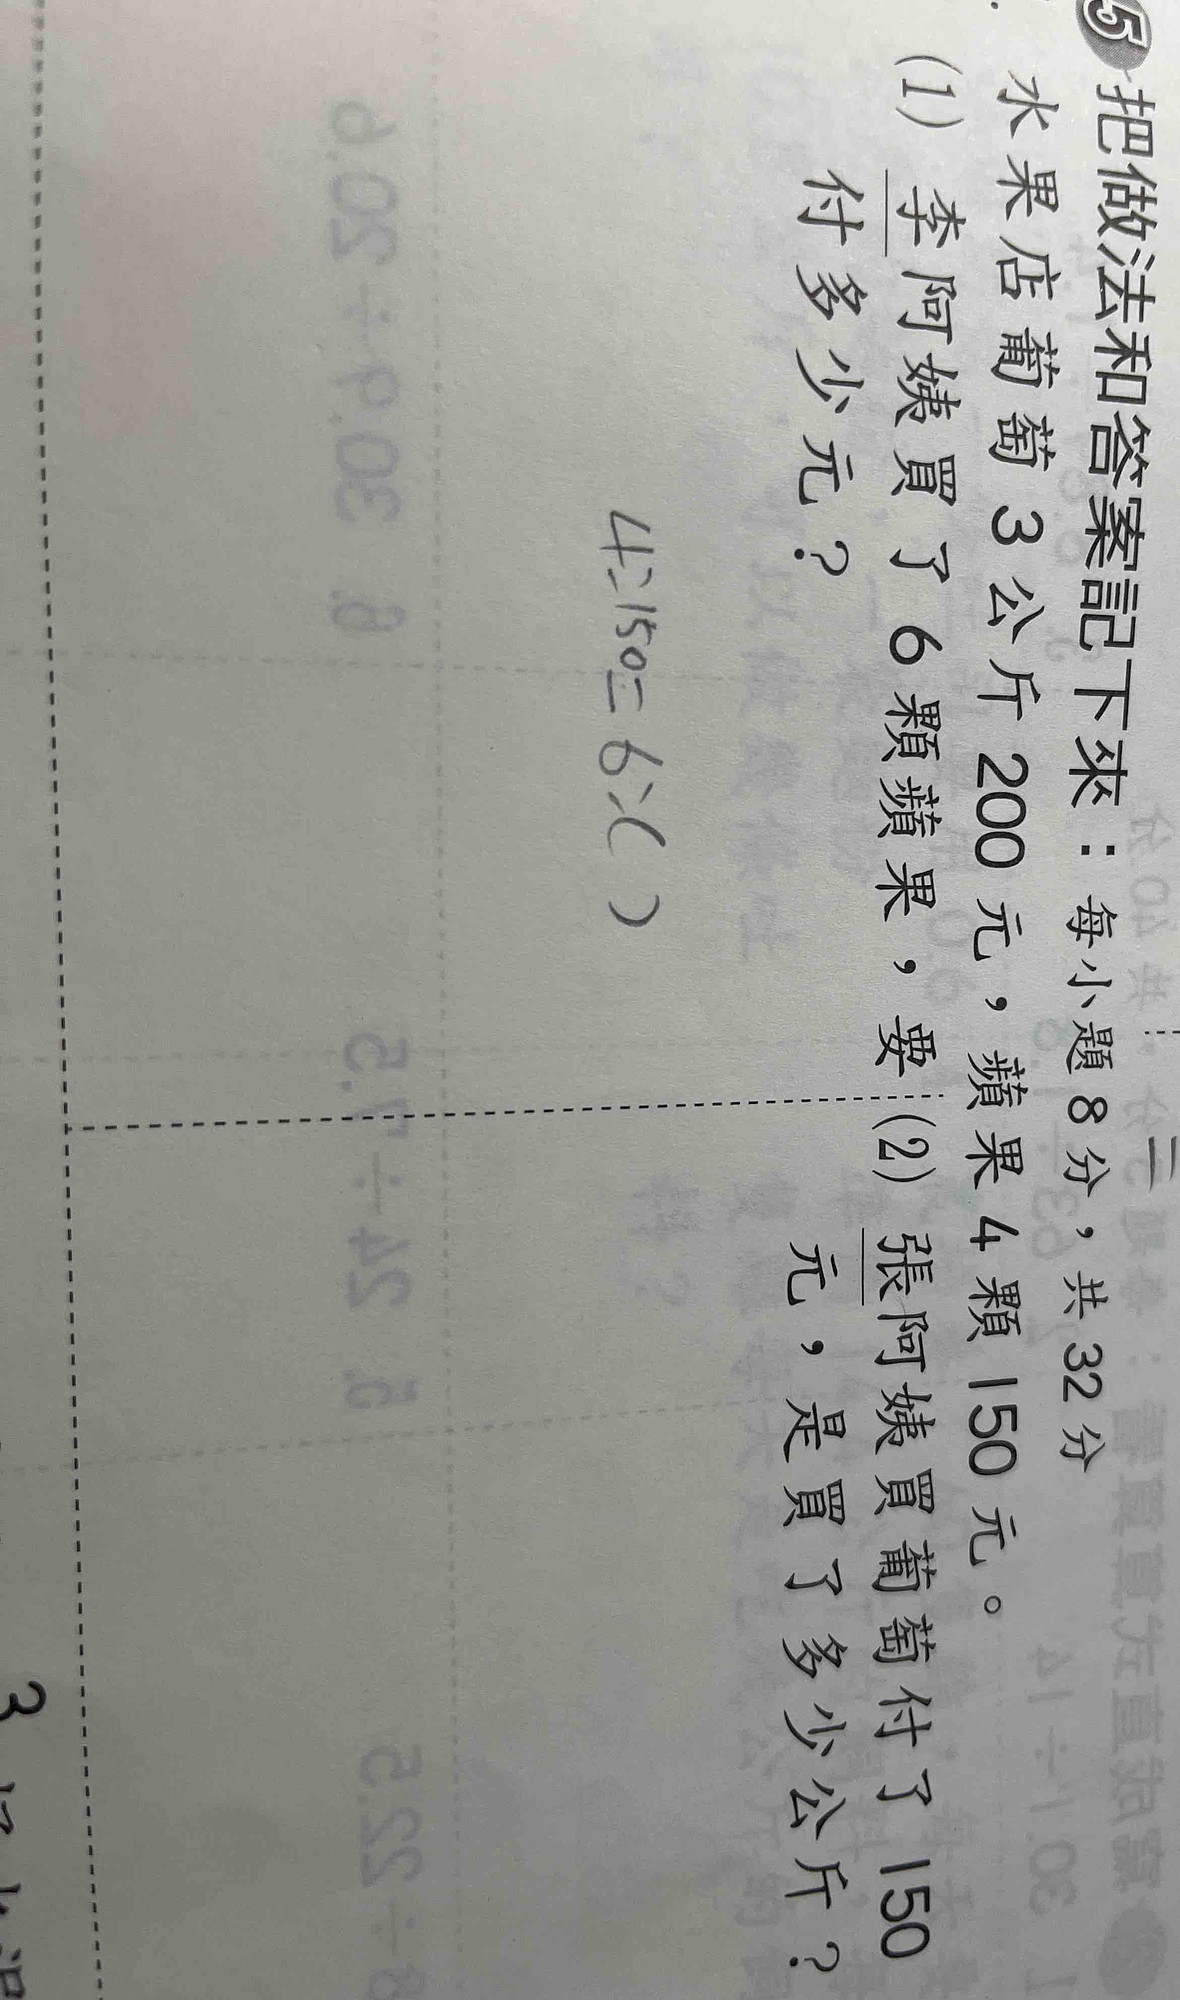 5 把做法和答案記下來：每小題8分，共32分
水果店葡萄3公斤200元，蘋果4顆150元。
(1) 李阿姨買了6顆蘋果，要
付多少元？
4:150=6:( )
(2) 張阿姨買葡萄付了150
元，是買了多少公斤？